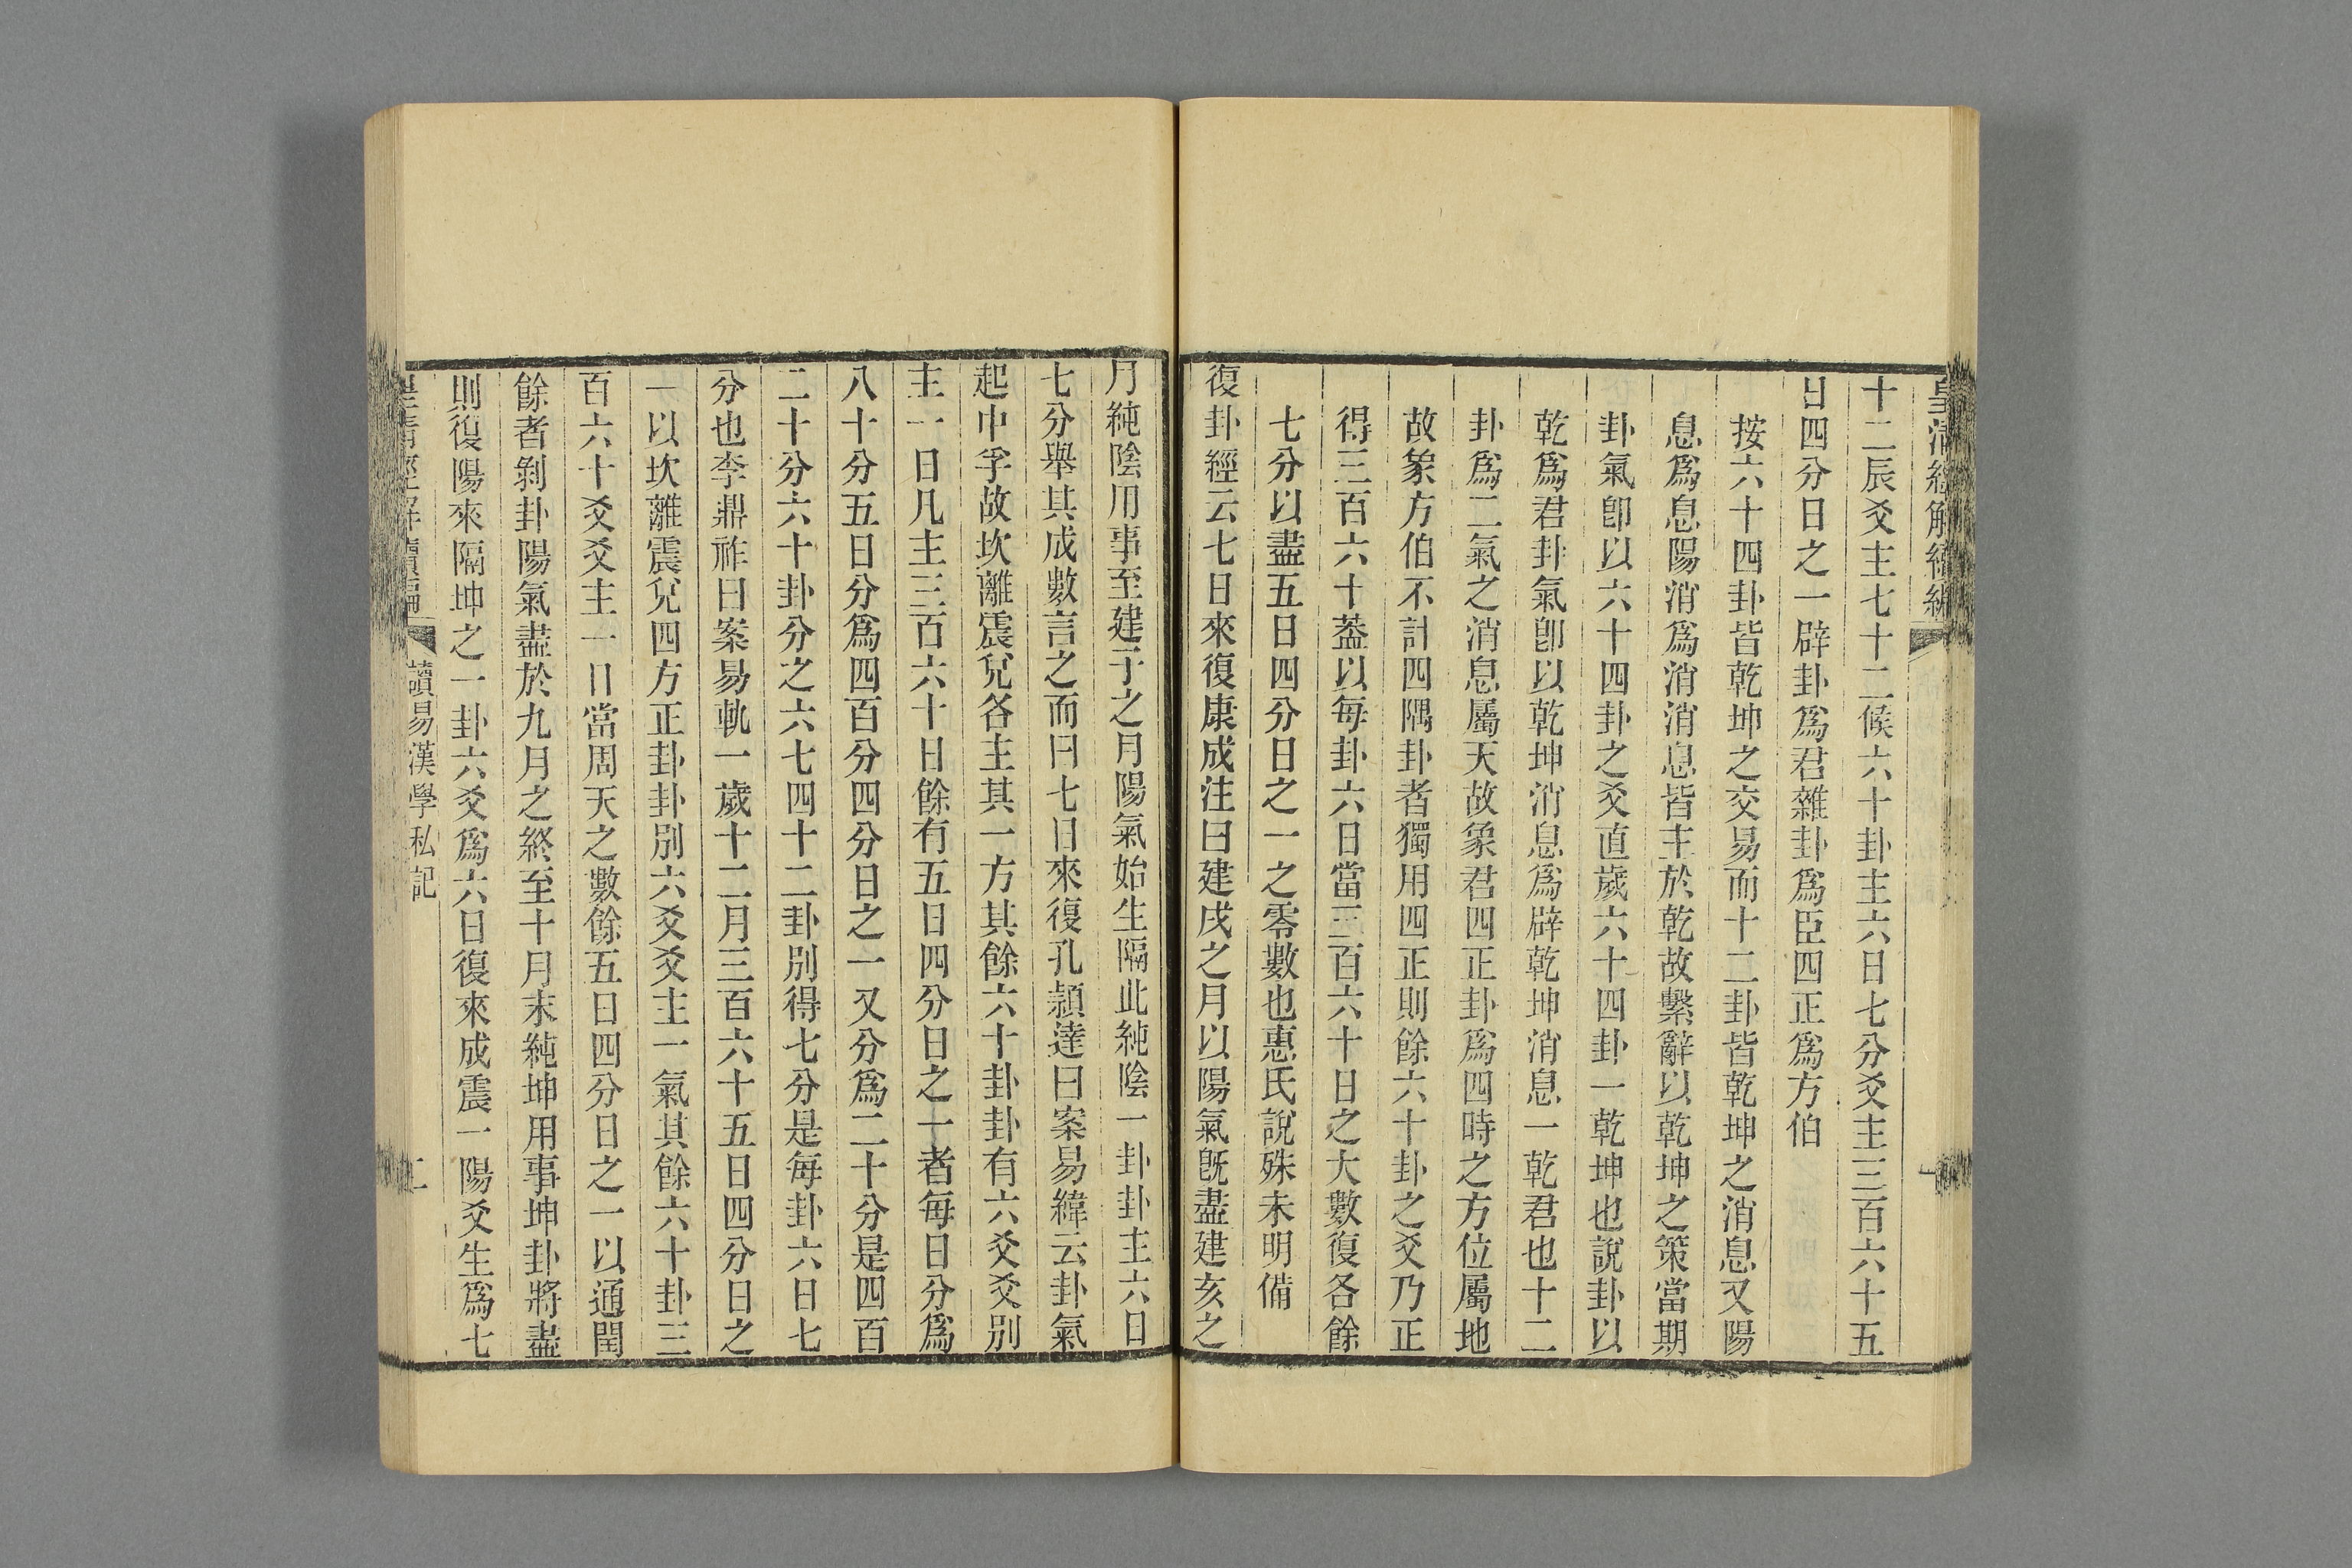 皇清經解續編
十二辰爻主七十二候六十卦主六日七分爻主三百六十五
日四分日之一辟卦爲君雜卦爲臣四正爲方伯
按六十四卦皆乾坤之交易而十二卦皆乾坤之消息又陽
息爲息陽消爲消消息皆主於乾故繫辭以乾坤之策當期
卦氣卽以六十四卦之爻直歲六十四卦一乾坤也說卦以
乾爲君卦氣卽以乾坤消息爲辟乾坤消息一乾君也十二
卦爲二氣之消息屬天故象君四正卦爲四時之方位屬地
故象方伯不計四隅卦者獨用四正則餘六十卦之爻乃正
得三百六十葢以每卦六日當三百六十日之大數復各餘
七分以盡五日四分日之一之零數也惠氏說殊未明備
復卦經云七日來復康成注曰建戌之月以陽氣旣盡建亥之
月純陰用事至建子之月陽氣始生隔此純陰一卦卦主六日
七分舉其成數言之而曰七日來復孔穎達曰案易緯云卦氣
起中孚故坎離震兌各主其一方其餘六十卦卦有六爻爻別
主一日凡主三百六十日餘有五日四分日之一者每日分爲
八十分五日分爲四百分四分日之一又分爲二十分是四百
二十分六十卦分之六七四十二卦別得七分是每卦六日七
分也李鼎祚曰案易軌一歲十二月三百六十五日四分日之
一以坎離震兌四方正卦卦別六爻爻主一氣其餘六十卦三
百六十爻爻主一日當周天之數餘五日四分日之一以通閏
餘者剝卦陽氣盡於九月之終至十月末純坤用事坤卦將盡
則復陽來隔坤之一卦六爻爲六日復來成震一陽爻生爲七
皇清經解續編 讀易漢學私記 二